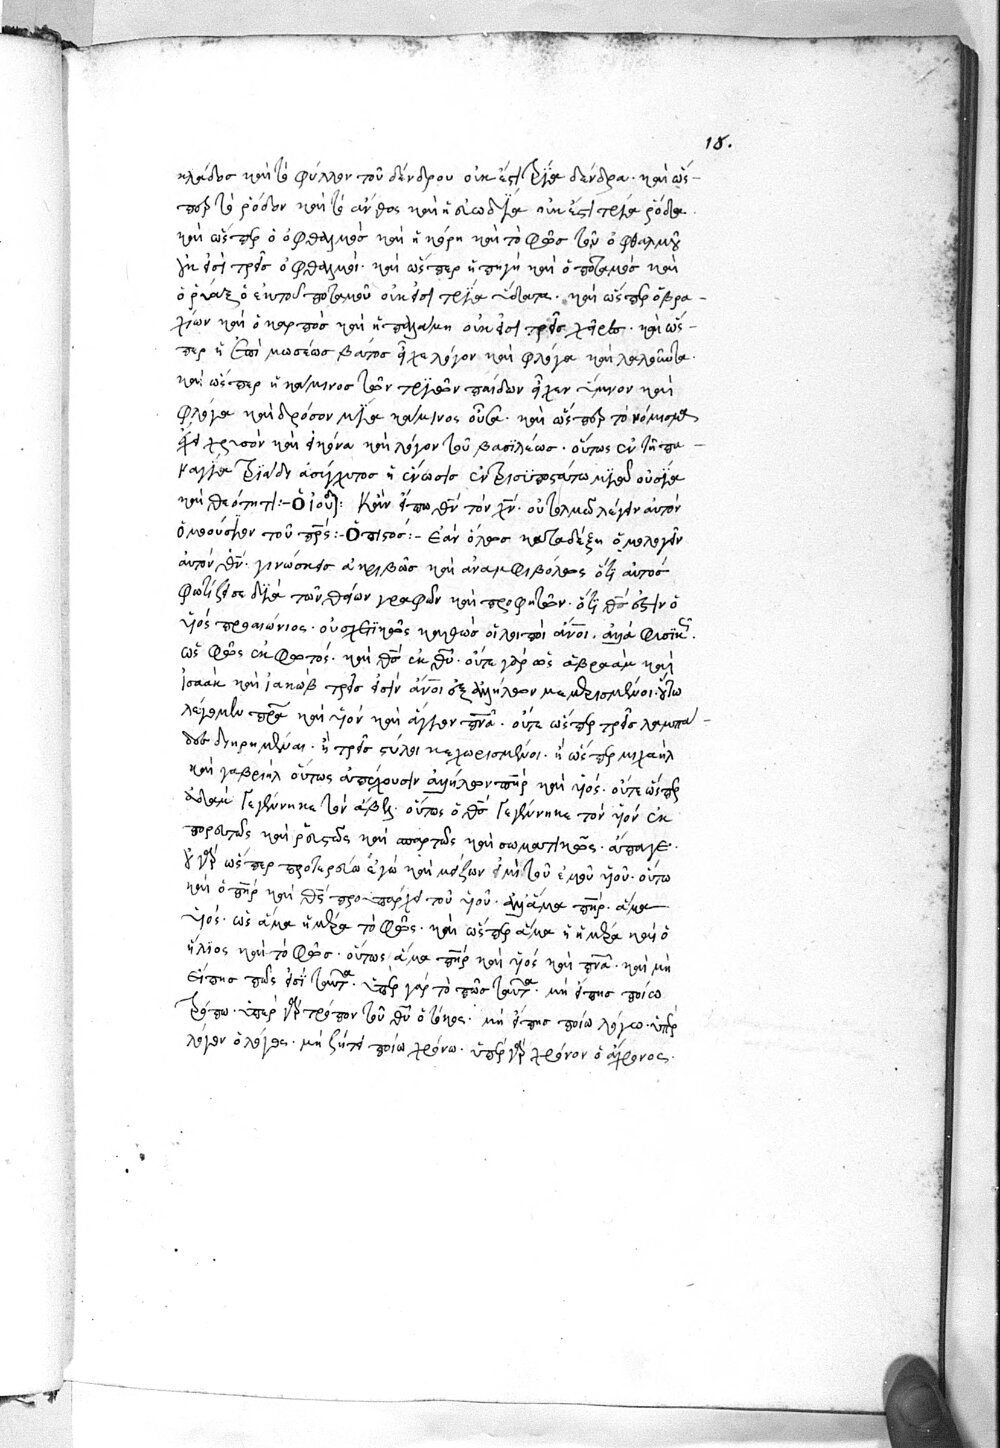 18.
κλάδος καὶ τὸ φύλλον τοῦ δένδρου οὐκ ἐστὶ τρία δένδρα · καὶ ὥσ-
περ τὸ ρόδον καὶ τὸ ἄνθος καὶ ἡ εὐωδία οὐκ ἐστὶ τρία ρόδα ·
καὶ ὥσπερ ὁ ὀφθαλμὸς καὶ ἡ κόρη καὶ τὸ φῶς τοῦ ὀφθαλμοῦ
οὐκ εἰσὶ τρεῖς ὀφθαλμοί · καὶ ὥσπερ ἡ πηγὴ καὶ ὁ ποταμὸς καὶ
ὁ ρύαξ ὁ ἐκ τοῦ ποταμοῦ οὐκ εἰσὶ τρία ὕδατα · καὶ ὥσπερ ὁ βρα-
χίων καὶ ὁ καρπὸς καὶ ἡ παλάμη οὐκ εἰσὶ τρεῖς χεῖρες · καὶ ὥσ-
περ ἡ ἐπὶ μωσέως βάτος εἶχε λόγον καὶ φλόγα καὶ λαλοῦντα ·
καὶ ὥσπερ ἡ κάμινος τῶν τριῶν παίδων εἶχεν ὕμνον καὶ
φλόγα καὶ δρόσον μία κάμινος οὖσα · καὶ ὥσπερ τὸ νόμισμα
ἔχει χρυσὸν καὶ εἰκόνα καὶ λόγον τοῦ βασιλέως · οὕτως ἐν τῇ πα-
ναγία τριάδι ἀσύγχυτος ἡ ἕνωσις ἐν τρισυποστάτω μιᾷ οὐσία
καὶ θεότητι :- Ὁ ἰου<sup>δ</sup> : Κἂν εἴπω θν τὸν χν · οὐ τολμῶ λέγειν αὐτὸν
ὁμοούσιον τοῦ πρς :- Ὁ πιστός :- Ἐὰν ὅλως καταδέξη ὁμολογεῖν
αὐτὸν θν · γινώσκεις ἀκριβῶς καὶ ἀναμφιβόλως ὅτι αὐτός
φωτίζει σε διὰ τῶν θείων γραφῶν καὶ προφητῶν · ὅτι θς ἐστὶν ὁ
υἱὸς προαιώνιος · οὐ σχετικῶς καθὼς οἱ λοιποὶ ανοι · ἀλλὰ φυσικ ·
ὡς φῶς ἐκ φωτός · καὶ θς ἐκ θυ · οὔτε γὰρ ὡς ἀβραὰμ καὶ
ἰσαὰκ καὶ ἰακώβ τρεῖς εἰσὶν ανοι ἐξ ἀλλήλων μεμερισμένοι · οὕτω
λέγομεν πρα καὶ υἱόν καὶ ἅγιον πνα · οὔτε ὥσπερ τρεῖς λαμπά-
δες διηρημέναι · ἢ τρεῖς στύλοι κεχωρισμένοι · ἢ ὥσπερ μιχαὴλ
καὶ γαβριὴλ οὕτως ἀπέχουσιν ἀλλήλων πηρ καὶ υἱός · οὔτε ὥσπερ
ἀδὰμ γεγέννηκε τὸν ἄβελ · οὕτως ὁ θς γεγέννηκε τὸν υἱόν ἐκ
πορευτῶς καὶ ρευστῶς καὶ καὶ σωματικῶς · ἄπαγε ·
οὐ γὰρ ὥσπερ προτερεύω ἐγὼ καὶ μείζων εἰμὶ τοῦ ἐμοῦ υἱοῦ · οὕτω
καὶ ὁ πηρ καὶ θς προυπάρχει τοῦ υἱοῦ · ἀλλ' ἅμα πηρ · ἅμα
υἱός · ὡς ἅμα ἡμέρα τὸ φῶς · καὶ ὥσπερ ἅμα ἡ ἡμέρα καὶ ὁ
ἥλιος καὶ τὸ φῶς · οὕτως ἅμα πηρ καὶ υἱός καὶ πνα · καὶ μὴ
εἴπης πῶς εἰσὶ ταῦτα · ὑπὲρ γὰρ τὸ πῶς ταῦτα · μὴ εἴπης ποίω
τρόπω · ὑπὲρ γὰρ τρόπον τοῦ θυ ὁ τόκος · μὴ εἴπης ποίω λόγω · ὑπὲρ
λόγον ὁ λόγος · μὴ ζήτει ποίω χρόνω · ὑπὲρ γὰρ χρόνον ὁ ἄχρονος ·